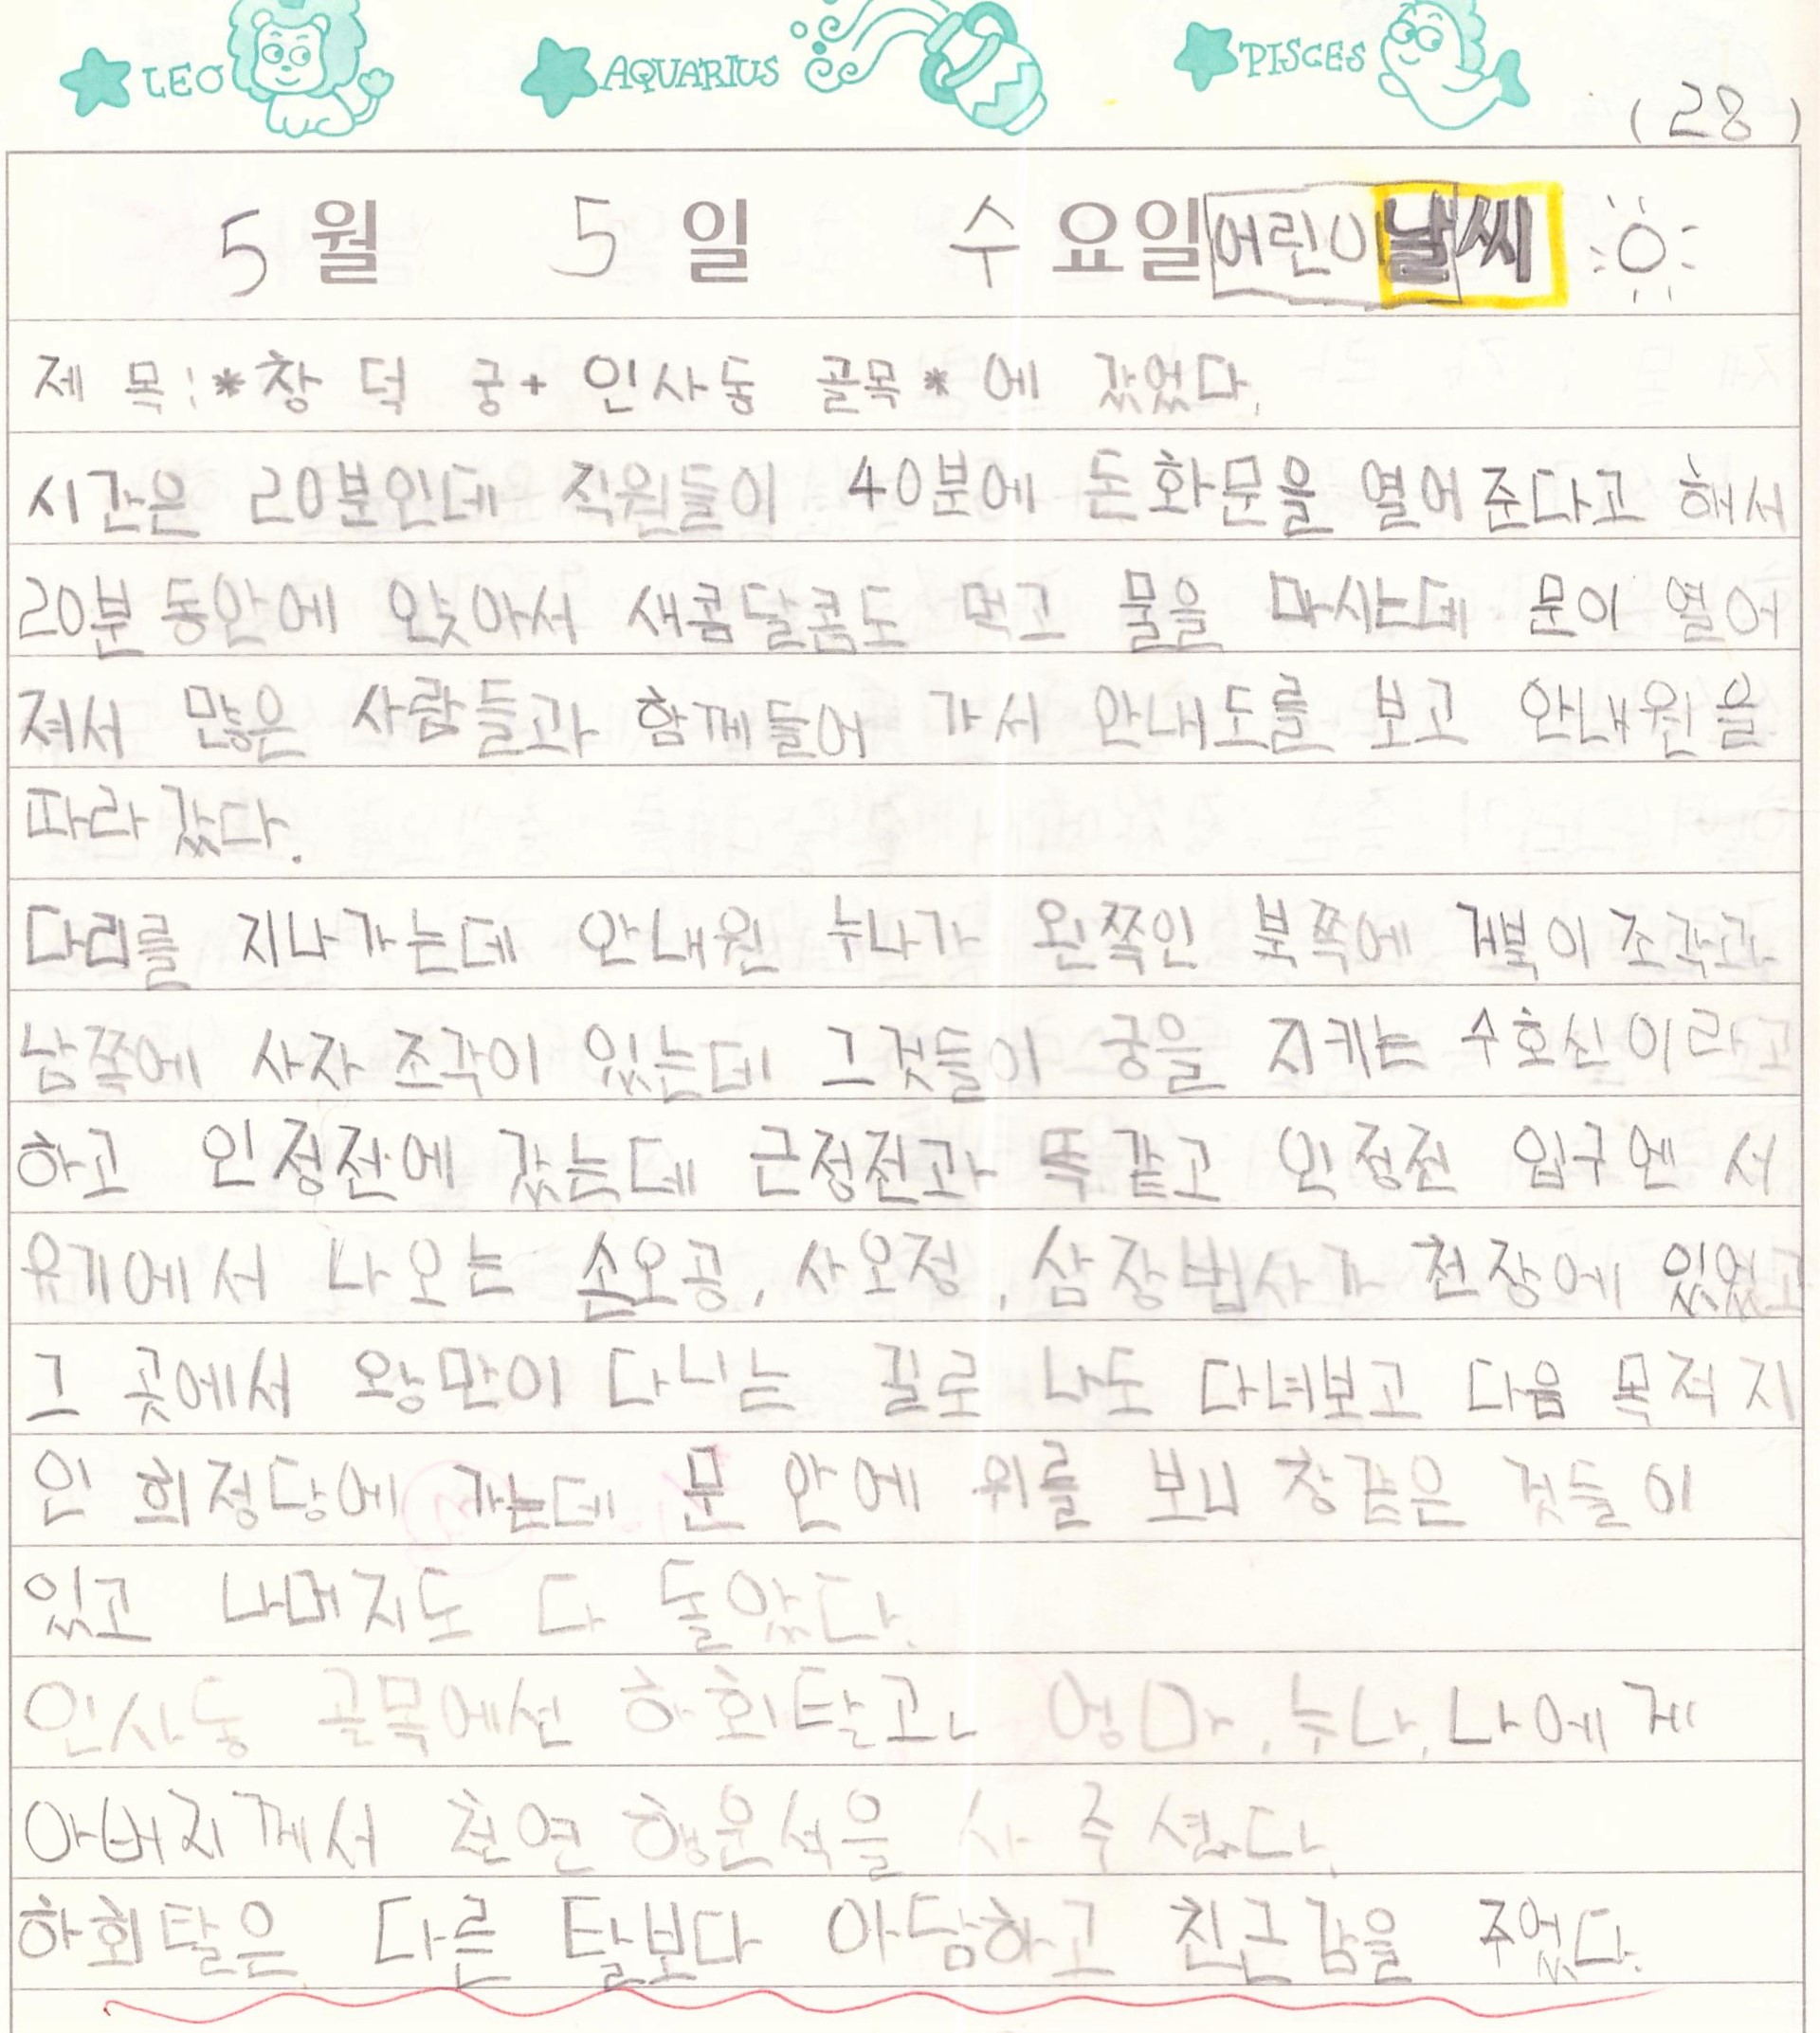 LEO AQUARIUS PISCES
(28)
5월 5일 수요일 어린이 날씨
제 목: *창 덕 궁+ 인사동 골목* 에 갔었다.
시간은 20분인데 직원들이 40분에 돈화문을 열어준다고 해서
20분 동안에 앉아서 새콤달콤도 먹고 물을 마시는데 문이 열어
져서 많은 사람들과 함께들어 가서 안내도를 보고 안내원을
따라 갔다.
다리를 지나가는데 안내원 누나가 왼쪽인 북쪽에 거북이 조각과
남쪽에 사자 조각이 있는데 그것들이 궁을 지키는 수호신이라고
하고 인정전에 갔는데 근정전과 똑같고 인정전 입구엔 서
유기에서 나오는 손오공, 사오정, 삼장법사가 천장에 있었고
그 곳에서 왕만이 다니는 길로 나도 다녀보고 다음 목적지
인 희정당에 가는데 문 안에 위를 보니 창같은 것들이
있고 나머지도 다 돌았다.
인사동 골목에선 하회탈고, 엄마, 누나, 나에게
아버지께서 천연 행운석을 사 주셨다.
하회탈은 다른 탈보다 아담하고 친근감을 주었다.